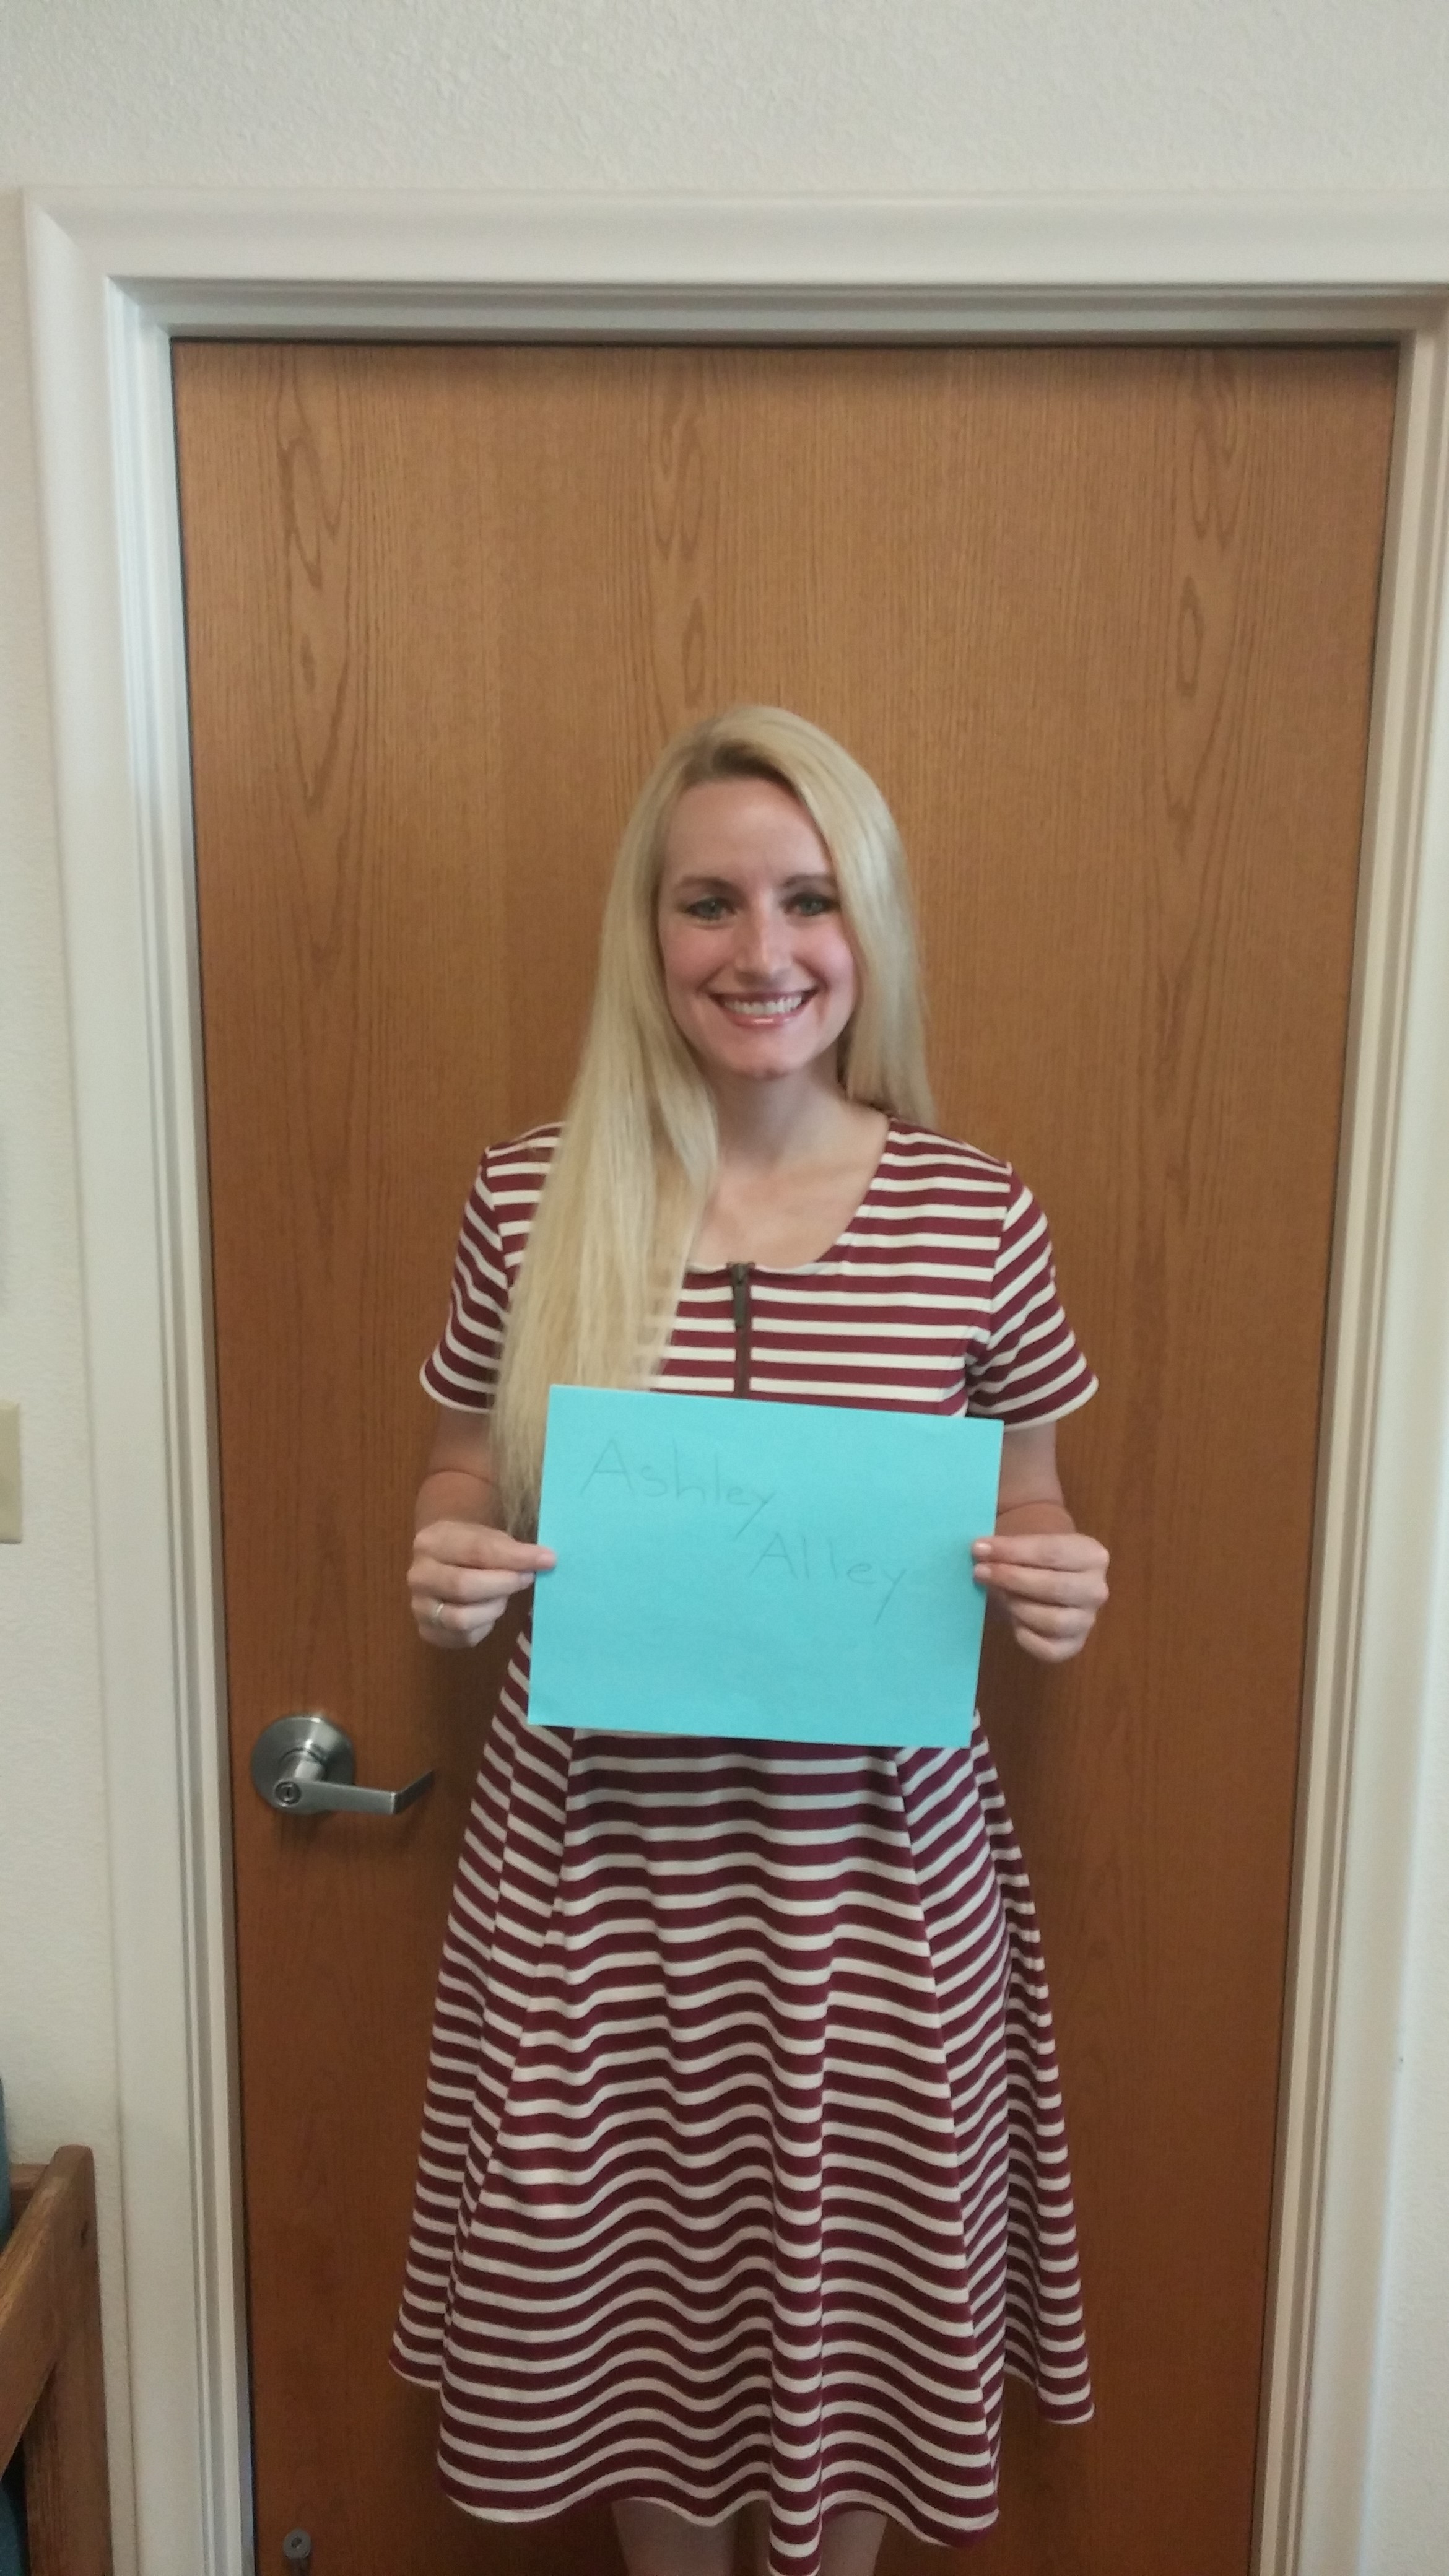 Ashley
Alley